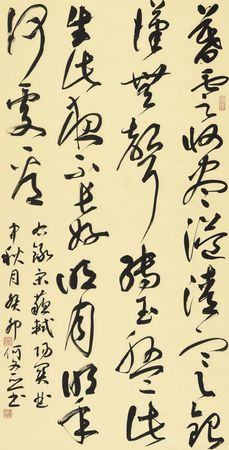 暮雲收盡溢清寒銀
漢無聲轉玉盤此
生此夜不長好明月明年
何處看
右錄宋蘇軾陽關曲
中秋月癸卯何書